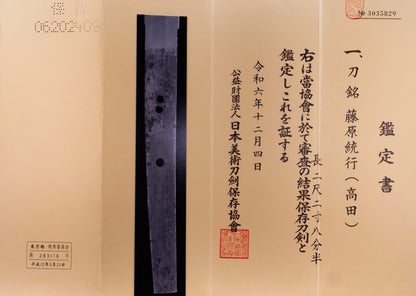 鑑定書
一、刀 銘 藤原統行（高田）
長 二尺二寸八分半
右は當協會に於て審査の結果保存刀剣と
鑑定しこれを証する
令和六年十二月四日
公益財團法人 日本美術刀劍保存協會
№ 3035829
保存
06202409
東京都 教育委員会
第 283118 号